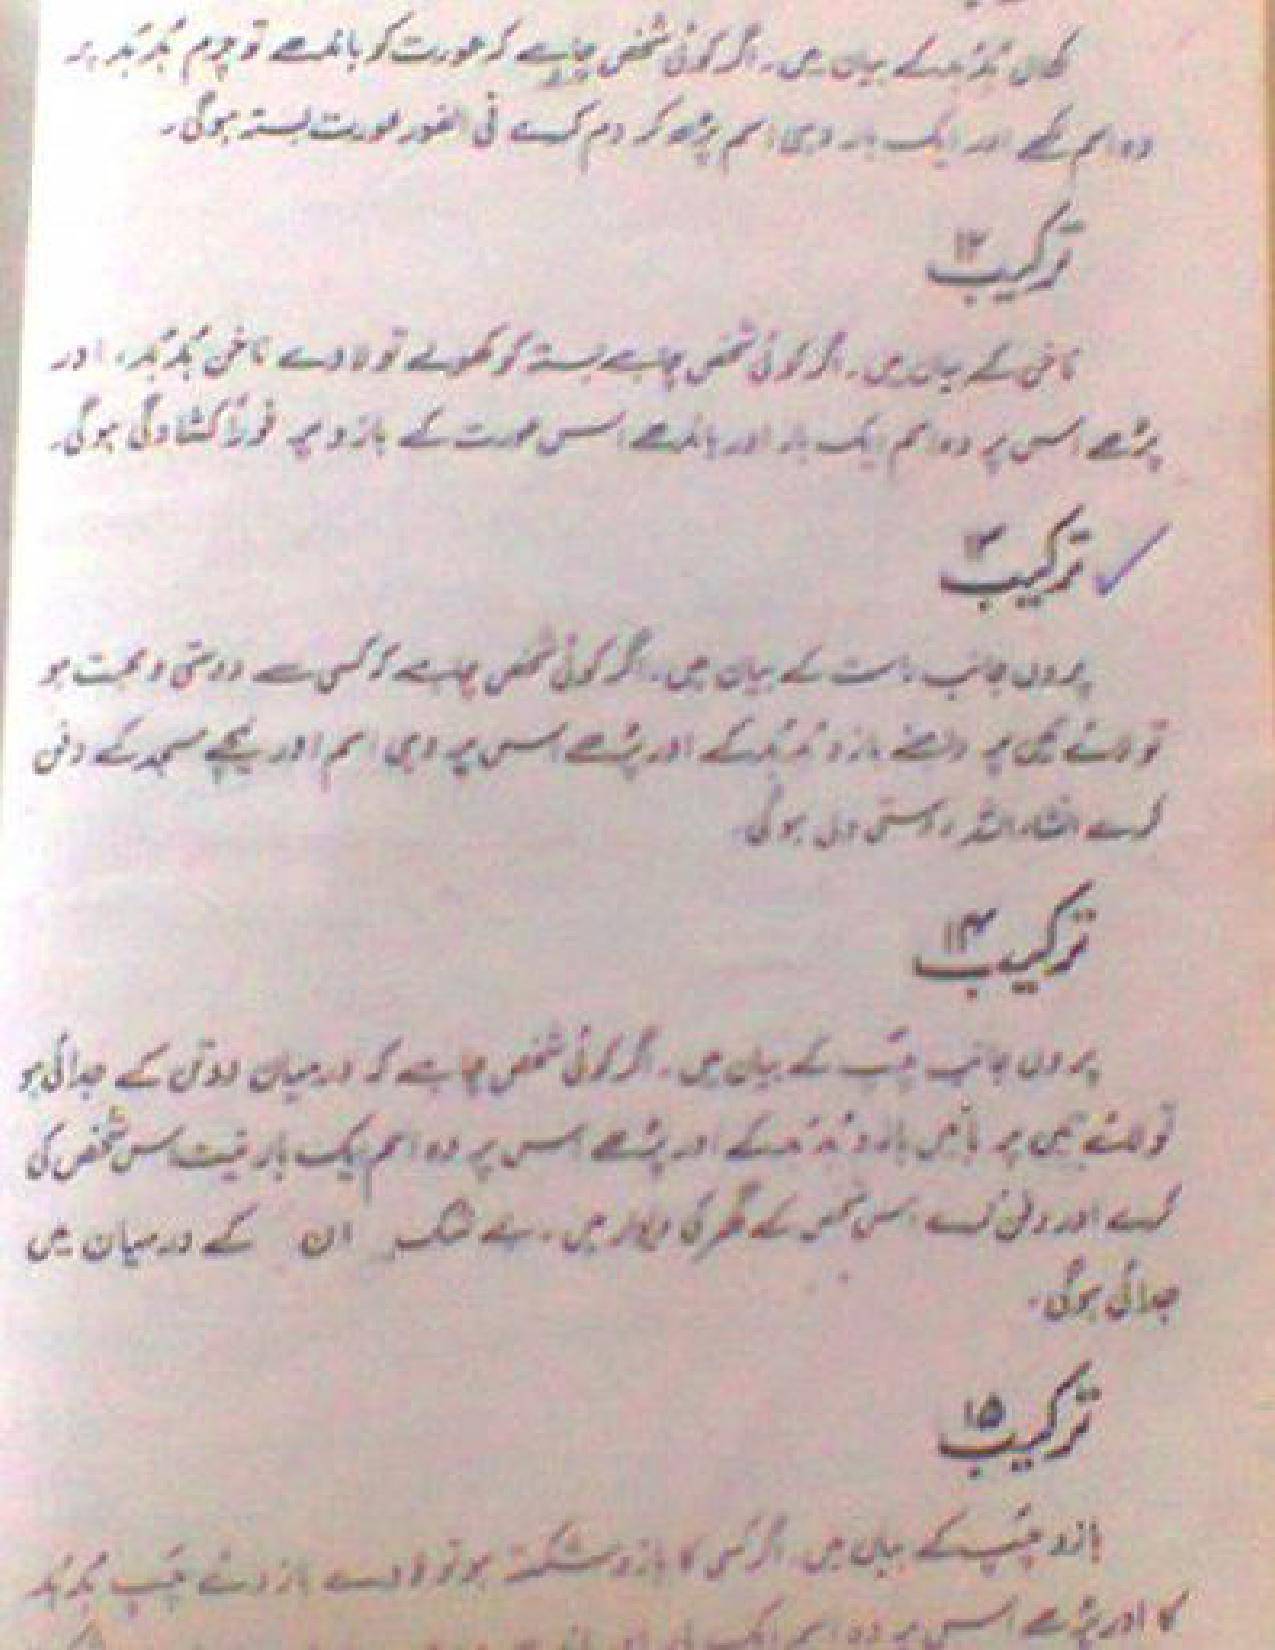 کھال ہُدہُد کے بیان میں۔ اگر کوئی شخص چاہے کہ عورت کو باندھے تو چرم ہُدہُد پر
وہ اسم لکھے اور ایک بار وہی اسم پڑھ کر دم کرے فی الفور عورت بستہ ہوگی۔
ترکیب ۱۲
ناخن کے بیان میں۔ اگر کوئی شخص چاہے بستہ کو کھولے تو لاوے ناخن ہُدہُد، اور
پڑھے اس پر وہ اسم ایک بار اور باندھے اس عورت کے بازو پر فوراً کشادگی ہوگی۔
ترکیب ۱۳
پروں جانب راست کے بیان میں۔ اگر کوئی شخص چاہے کہ کسی سے دوستی و محبت ہو
تو لائے پر داہنے بازو ہُدہُد کے اور پڑھے اس پر وہی اسم اور نیچے مسجد کے دفن
کرے انشاء اللہ دوستی ہوگی۔
ترکیب ۱۴
پروں جانب چپ کے بیان میں۔ اگر کوئی شخص چاہے کہ درمیان دوتن کے جدائی ہو
تو لائے پر بائیں بازو ہُدہُد کے اور پڑھے اس پر وہ اسم ایک بار نیت اس شخص کی
کرے اور دفن کرے اس کے گھر کی دیوار میں۔ بے شک ان کے درمیان میں
جدائی ہوگی۔
ترکیب ۱۵
بازو چپ کے بیان میں۔ اگر کسی کا بازو شکستہ ہو تو لاوے بازوئے چپ ہُدہُد
کا اور پڑھے اس پر وہ اسم ایک بار